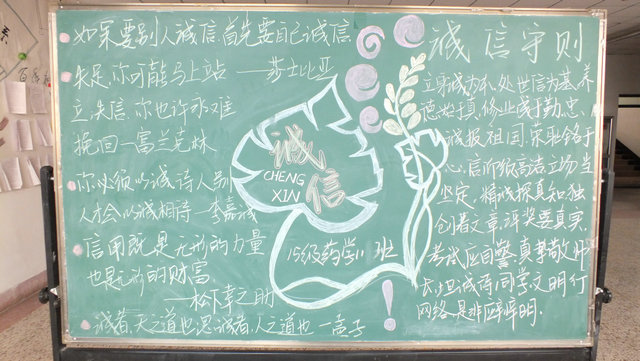 如果要别人诚信,首先要自己诚信
——莎士比亚
失足,你可能马上站
立,失信,你也许永难
挽回—富兰克林
你必须以诚待人,别
人才会以诚相待—李嘉诚
信用既是无形的力量
也是无形的财富
——松下幸之助
诚者,天之道也,思诚者,人之道也—孟子
诚信
CHENG
XIN
15级药学11班
!
诚信守则
立身诚为本,处世信为基,养
德始于真,修业成于勤,忠
诚报祖国,荣耻铭于
心,信阶级高洁,立场当
坚定,精诚探真知,独
创著文章,评奖要真实,
考试应自警,真挚敬师
长,坦诚待同学,文明行
网络,是非醉醉明.